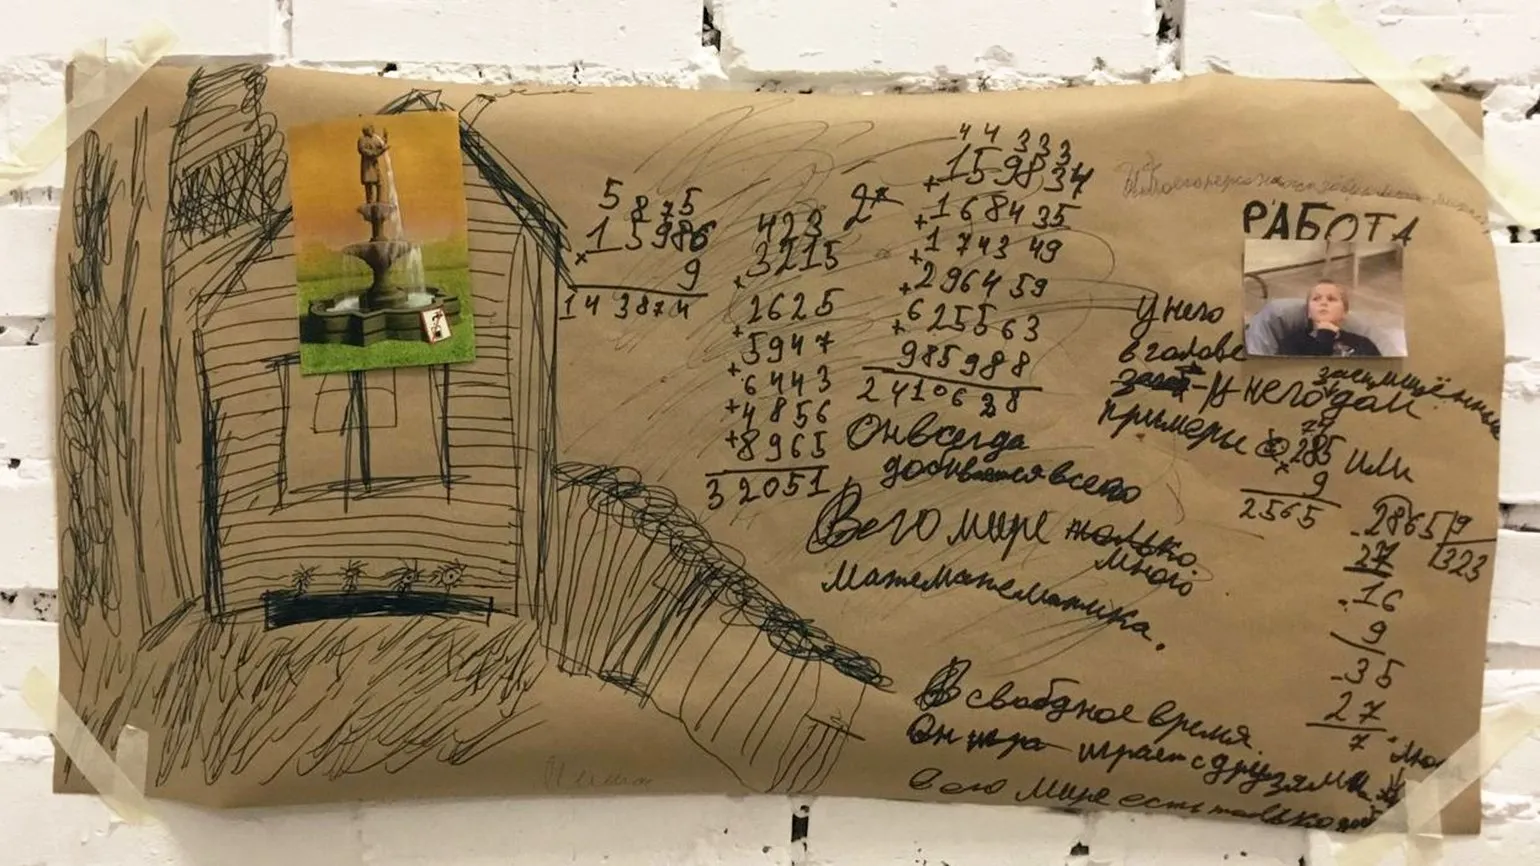 5
8 2 5
1 5 986
× 9
14 3874
423
3215
+
2625
+
5947
+
6443
+
4856
+
8965
32051
2*
44 333
15983 34
+
168435
+
1 743 49
+
296459
+
6 25563
985988
2410628
Он всегда
добивается всего
В его мире только
много
Математематика.
РАБОТА
У него
в голове
У него дом
защищённый
примеры
285 или
× 9
2565
2865 9
27 323
16
9
35
27
7
В свободное время.
Он играет с друзями
в его мире есть только